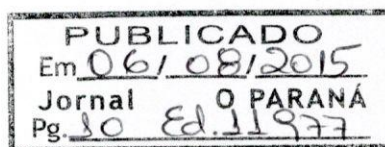 PUBLICADO
Em 06/08/2015
Jornal O PARANÁ
Pg. 10 Ed. 11977